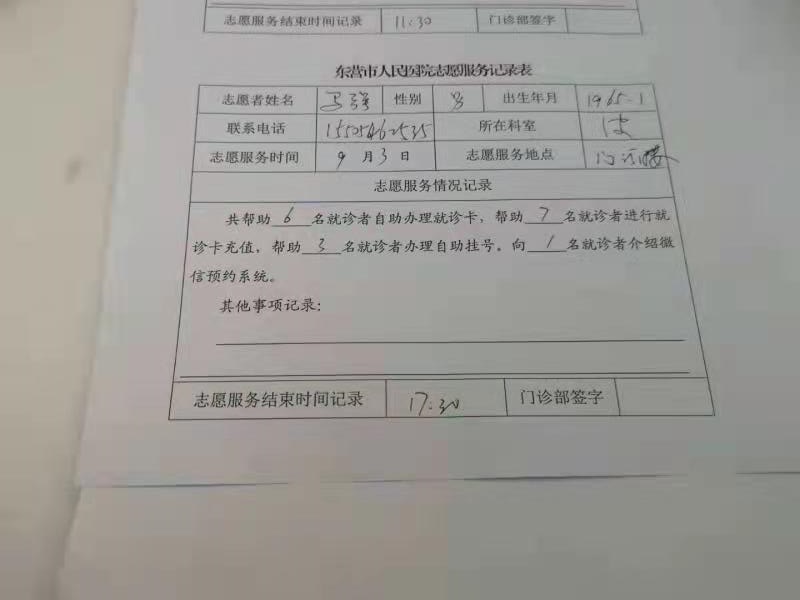 志愿服务结束时间记录 11:30 门诊部签字
东营市人民医院志愿服务记录表
志愿者姓名 马强 性别 男 出生年月 1965.1
联系电话 所在科室
志愿服务时间 9月3日 志愿服务地点 门诊楼
志愿服务情况记录
共帮助6名就诊者自助办理就诊卡，帮助7名就诊者进行就
诊卡充值，帮助3名就诊者办理自助挂号。向1名就诊者介绍微
信预约系统。
其他事项记录：
志愿服务结束时间记录 17:30 门诊部签字